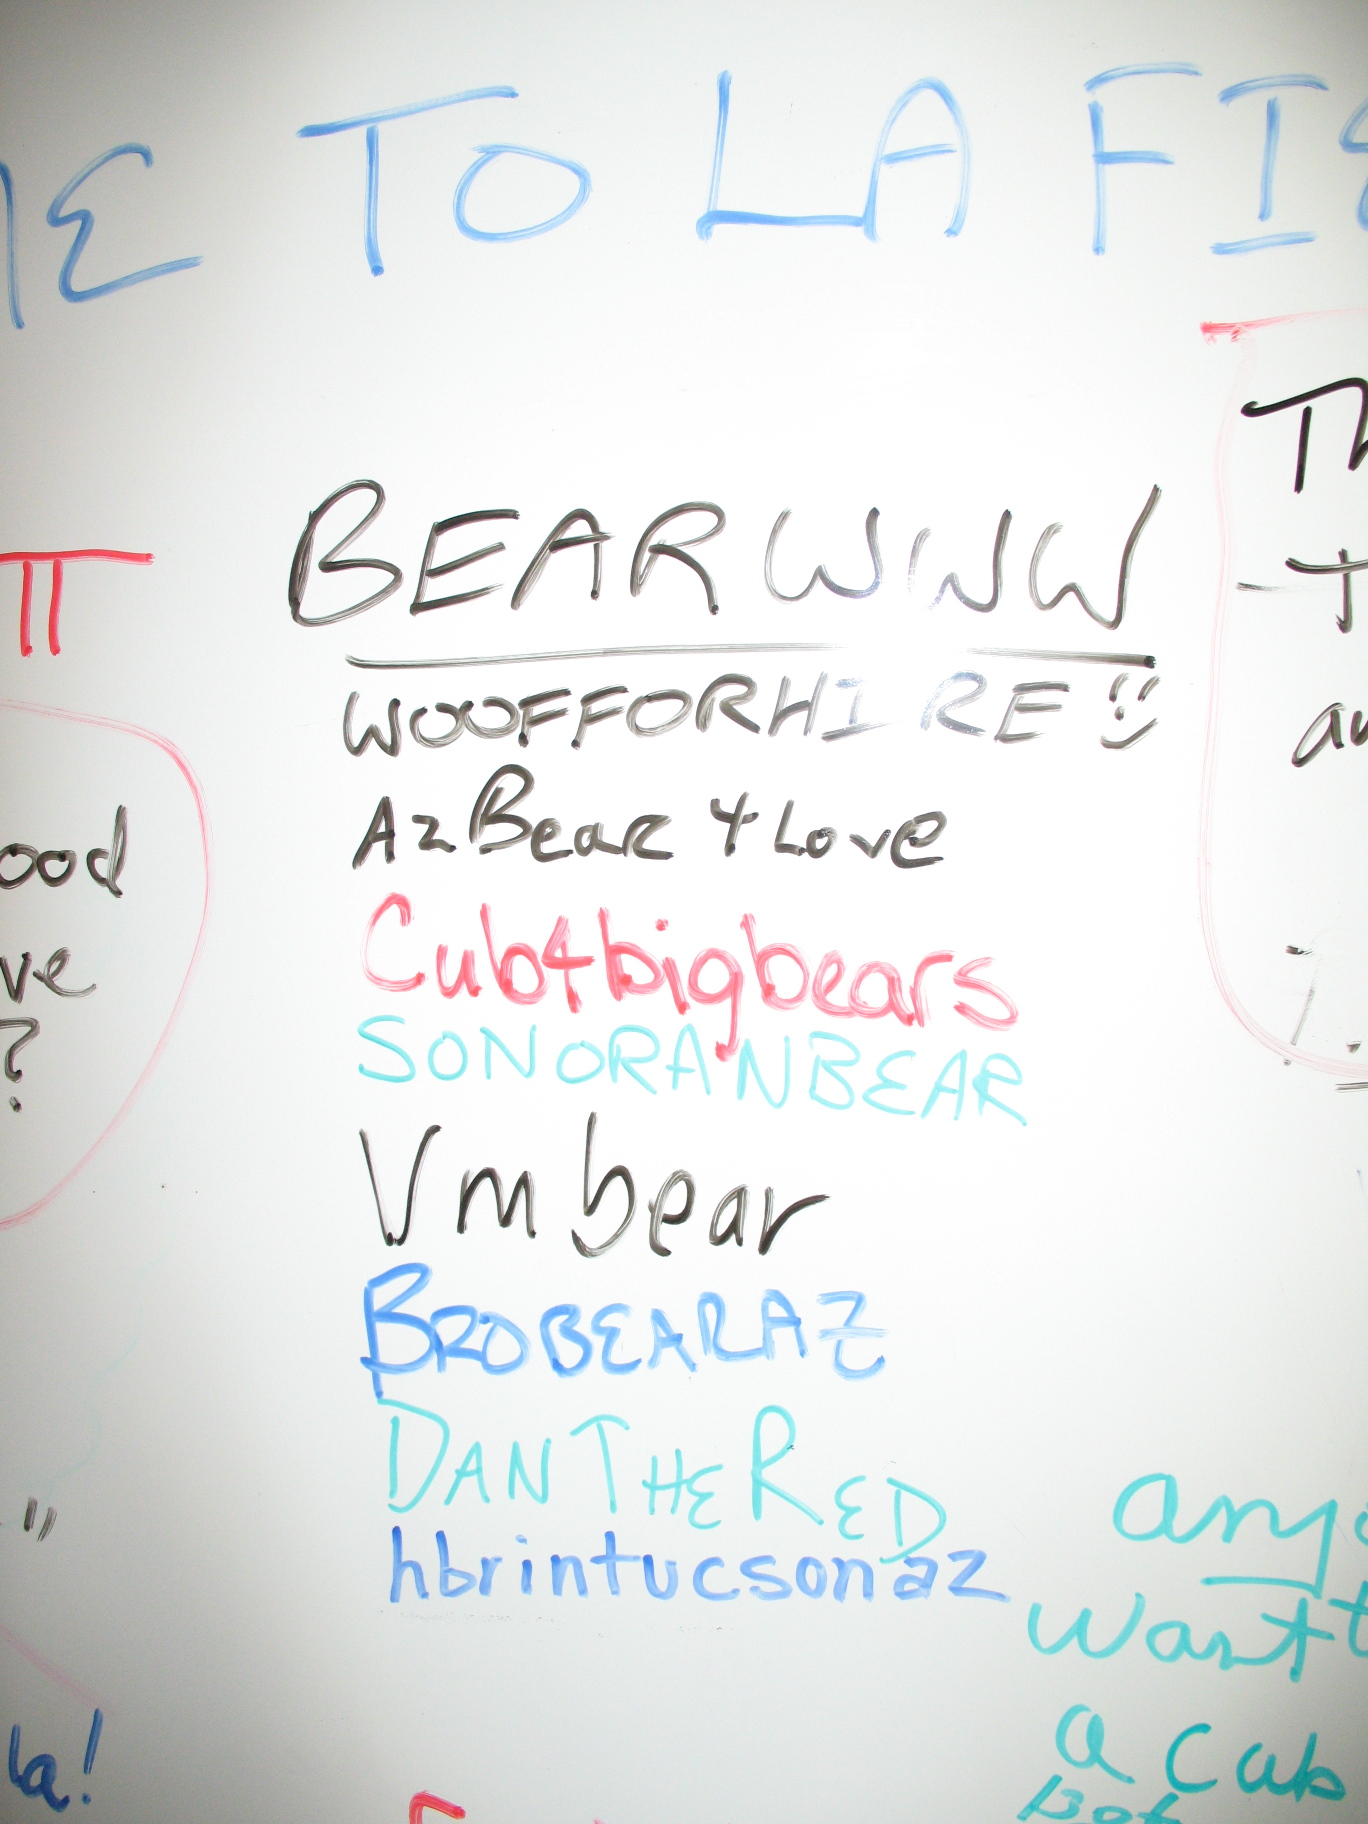 TO LA
BEARWWW
WOOFFORHIRE
AzBear4Love
Cub4bigbears
SONORANBEAR
Vmbear
BROBEARAZ
DANTHERED
hbrintucsonaz
want
a cub